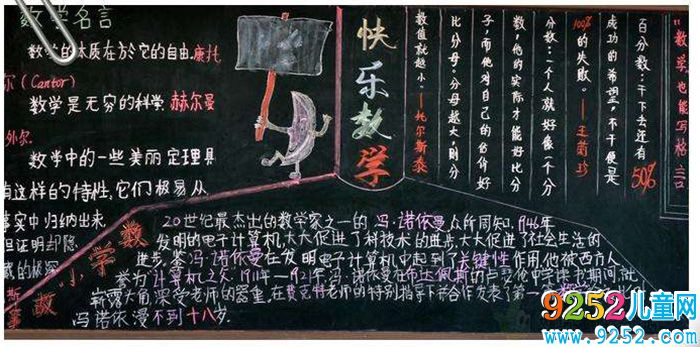 数学名言
数学的本质在於它的自由.康托
尔(Cantor)
数学是无穷的科学 赫尔曼
外尔.
数学中的一些美丽定理具
有这样的特性,它们极易从
事实中归纳出来,
但证明却隐
藏的极深
快乐数学
"数学"也能写格言
百分数:干下去还有50%
成功的希望,不干便是
100%的失败。——王菊珍
分数:一个人就好像一个分
数,他的实际才能好比分
子,而他对自己的估价好
比分母。分母越大,则分
数值就越小。——托尔斯泰
数学小
20世纪最杰出的数学家之一的冯·诺依曼.众所周知,1946年
发明的电子计算机,大大促进了科技术的进步,大大促进了社会生活的
进步.鉴冯·诺依曼在发明电子计算机中起到了关键性作用,他被西方人
誉为"计算机之父.1911年一1921年,冯·诺依曼在布达佩斯的卢瑟伦中学读书期间,就
崭露头角深受老师的器重.在费克特老师的特别指导下并合作发表了第一
冯诺依漫不到十八岁.
9252儿童网
www.9252.com